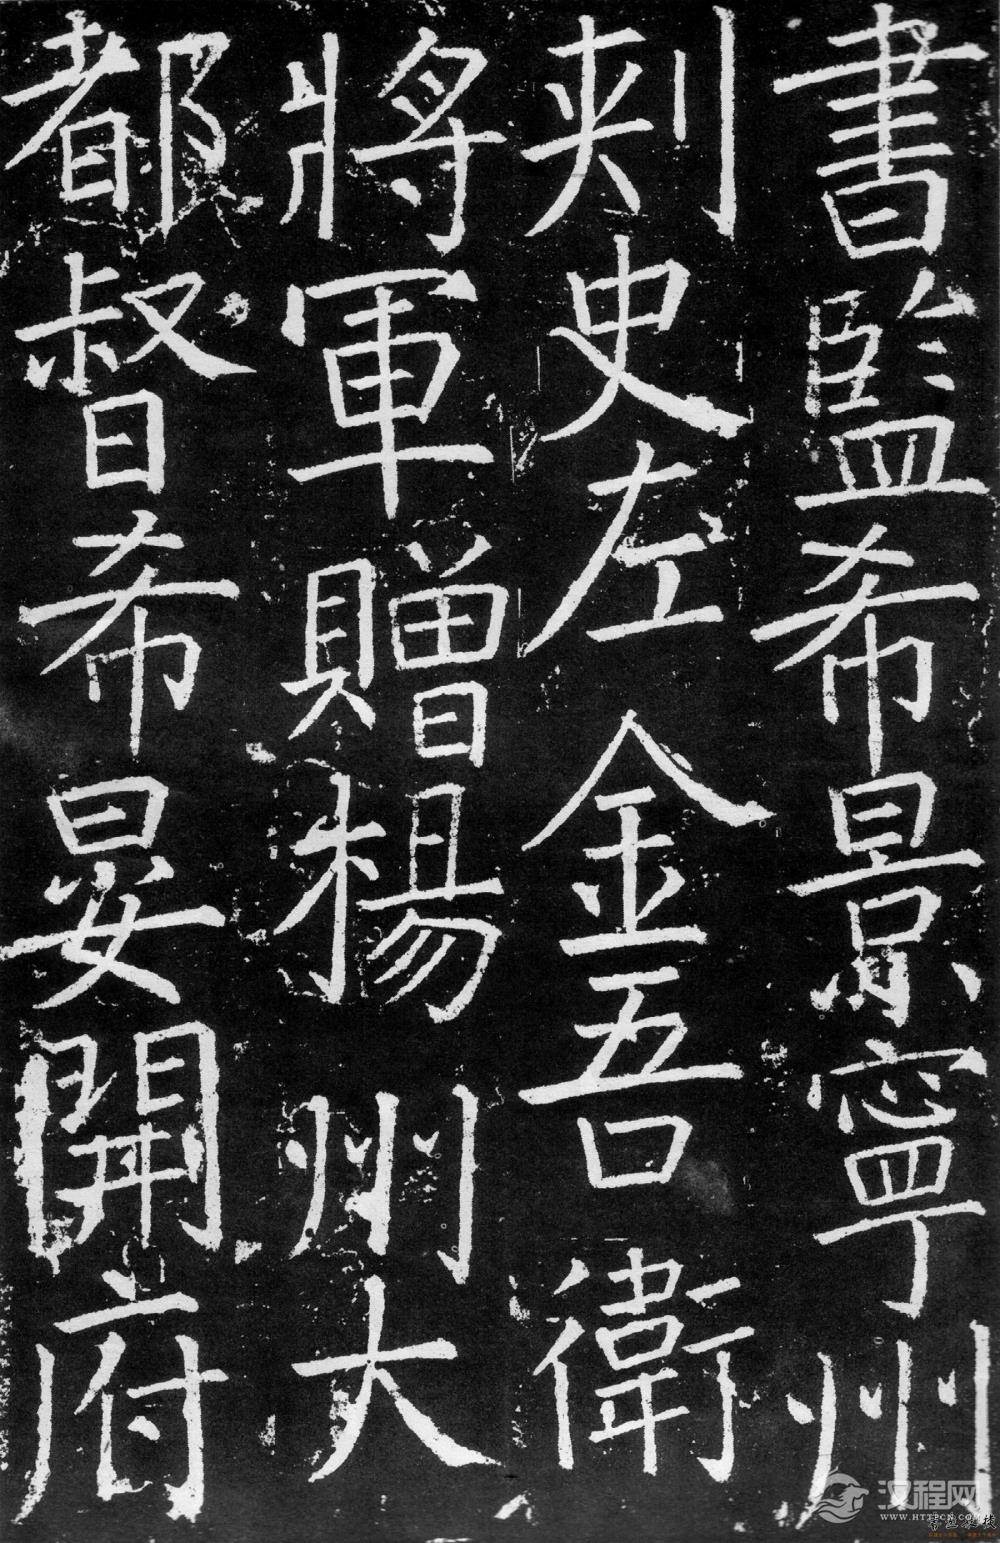 書監希景寧州
刺史左金吾衛
將軍贈楊州大
都督希晏開府
汉程网
WWW.HTTPCN.COM